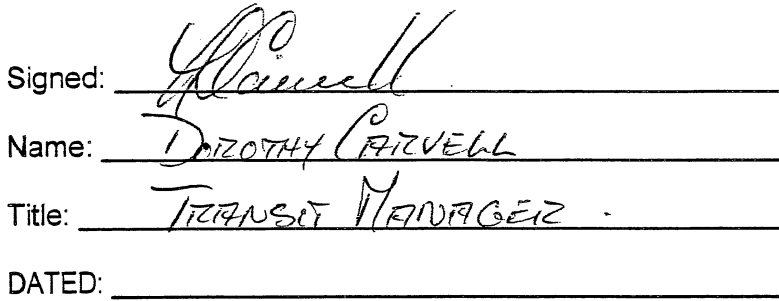 Signed:
Name: DOROTHY CARVELL
Title: TRANSIT MANAGER.
DATED: